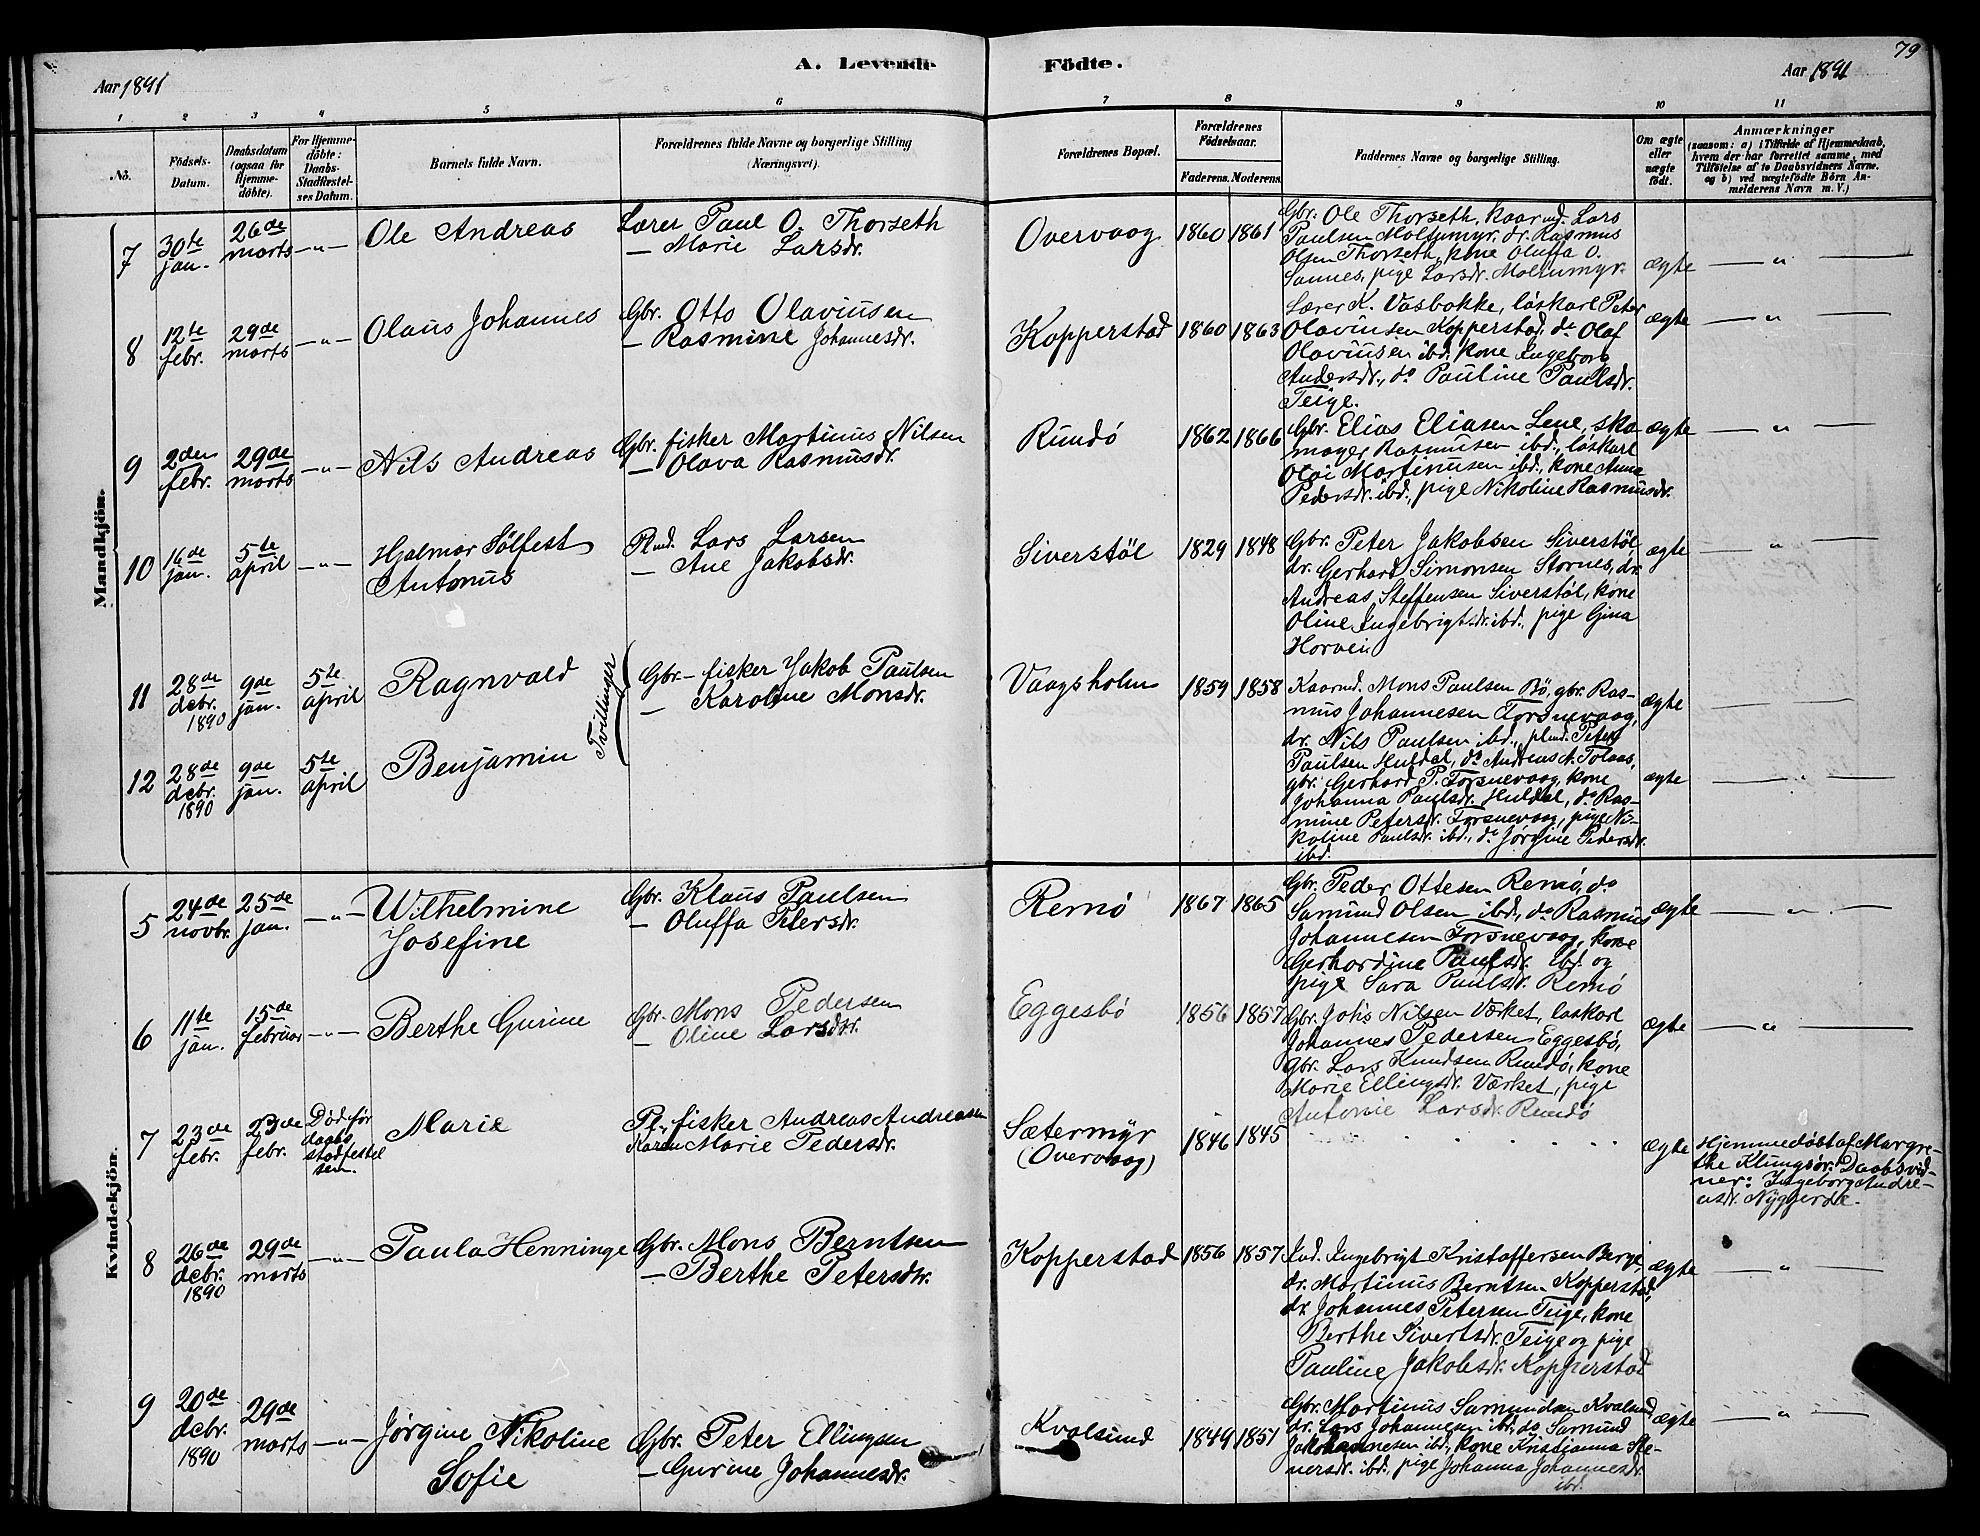 79
A. Levende Födte.
Aar 1891
Aar 1891
1 2 3 4 5 6 7 8 9 10 11
No.
Födsels-Datum.
Daabsdatum (ogsaa for Hjemmedöbte).
For Hjemmedöbte: Daabs-Stadfæstelses Datum.
Barnets fulde Navn.
Forældrenes fulde Navne og borgerlige Stilling (Næringsvei).
Forældrenes Bopæl.
Forældrenes Födselsaar.
Faderens. Moderens.
Faddernes Navne og borgerlige Stilling.
Om ægte eller uægte födt.
Anmærkninger
(saasom: a) i Tilfælde af Hjemmedaab,
hvem der har forrettet samme, med
Tilföielse af to Daabsvidners Navne.
og b) ved uægtefödte Börn Anmelderens Navn m. V.)
Mandkjön.
7 30te jan. 26de marts -"- Ole Andreas
Lærer Paul O. Thorseth
— Marie Larsdr.
Overvaag 1860 1861
Gbr. Ole Thorseth, kaarmd. Lars
Paulsen Moltumyr, dr. Rasmus
Olsen Thorseth, kone Oluffa O.
Sannes, pige Larsdr. Moltumyr.
ægte — " —
8 12te febr. 29de marts -"- Olaus Johannes
Gbr. Otto Olaviusen
— Rasmine Johannesdr.
Kopperstad 1860 1863
Lærer K. Vasbakke, löskarl Peter
Olaviusen Kopperstad, do Olaf
Olaviusen ibd., kone Ingeborg
Andersdr., do Pauline Paulsdr.
Teige.
ægte — " —
9 2den febr. 29de marts -"- Nils Andreas
Gbr. fisker Martinus Nilsen
— Olava Rasmusdr.
Rundö 1862 1866
Gbr. Elias Eliasen Lene, sko-
mager Rasmusen ibd., löskarl
Olai Martinusen ibd., kone Anna
Pedersdr. ibd., pige Nikoline Rasmusdr.
ægte — " —
10 16de jan. 5te april -"- Hjalmar Sölfest
Antonus
Plmd. Lars Larsen
— Ane Jakobsdr.
Siverstöl 1829 1848
Gbr. Peter Jakobsen Siverstöl
dr. Gerhard Simonsen Stornes, dr.
Andreas Steffensen Siverstöl, kone
Oline Ingebrigtsdr. ibd., pige Gina
Horvei
ægte — " —
11 28de debr. 1890 9de jan. 5te april Ragnvald
Tvillinger
Gbr. – fisker Jakob Paulsen
— Karoline Monsdr.
Vaagsholm 1859 1858
Kaarmd. Mons Paulsen Bö, gbr. Ras-
mus Johannesen Torsnevaag,
dr. Nils Paulsen ibd., plmd. Peter
Paulsen Huldal, do Andreas A. Tolaas,
gbr. Gerhard P. Torsnevaag, kone
Johanna Paulsdr. Huldal, do Ras-
mine Petersdr. Torsnevaag, pige Ni-
koline Paulsdr. ibd., do Jörgine Pedersdr.
ibd.
ægte — " —
12 28de debr. 1890 9de jan. 5te april Benjamin
ægte — " —
Kvindekjön.
5 24de novbr. 25de jan. -"- Wilhelmine
Josefine
Gbr. Klaus Paulsen
— Oluffa Petersdr.
Remö 1867 1865
Gbr. Peder Ottesen Remö, do
Samund Olsen ibd., do Rasmus
Johannesen Torsnevaag, kone
Gerhardine Paulsdr. ibd. og
pige Sara Paulsdr. Remö
ægte — " —
6 11te jan. 15de februar -"- Berthe Gurine
Gbr. Mons Pedersen
— Oline Larsdr.
Eggesbö 1856 1857
Gbr. Johs Nilsen Værket, löskarl
Johannes Pedersen Eggesbö,
gbr. Lars Knudsen Rundö, kone
Marie Ellingsdr. Værket, pige
Antonie Larsdr. Rundö
ægte — " —
7 23de febr. 23de febr. Död för
daabs
stadfestel
sen.
Marie
Pl., fisker Andreas Andreasen
Karen Marie Pedersdr.
Sætermyr
(Overvaag)
1846 1845
ægte
Hjemmedöbt af Margre-
the Klungsör. Daabsvid-
ner: Ingeborg Andre-
asdr. Nyggerde.
8 26de debr. 1890 29de marts -"- Paula Henninge
Gbr. Mons Berntsen
— Berthe Petersdtr.
Kopperstad 1856 1857
Ind. Ingebrigt Kristoffersen Berge,
dr. Martinus Berntsen Kopperstad,
dr. Johannes Petersen Teige, kone
Berthe Sivertsdr. Teige og pige
Pauline Jakobsdr. Kopperstad
ægte — " —
9 20de debr. 1890 29de marts -"- Jörgine Nikoline
Sofie
Gbr. Peter Ellingsen
— Gurine Johannesdr.
Kvalsund 1849 1851
Gbr. Martinus Samundsen Kvalsund
dr. Lars Johannesen ibd., do Samund
Johannesen ibd., kone Kristianna Ste-
nersdr. ibd., pige Johanna Johannesdr.
ibd.
ægte — " —